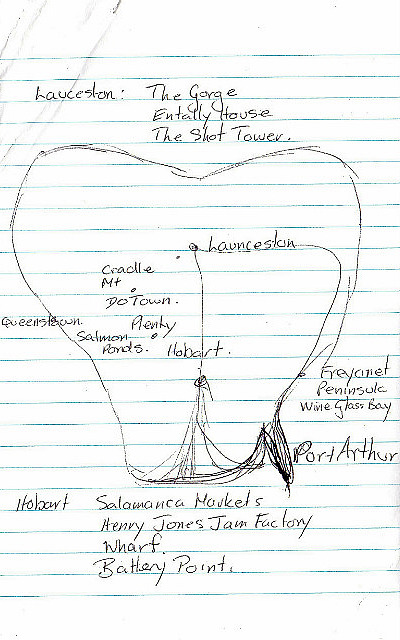 Launceston: The Gorge
Entally House
The Shot Tower.
Launceston
Cradle
Mt
DoTown.
Queenstown.
Plenty
Salmon
Ponds.
Hobart.
Freycinet
Peninsula
Wine Glass Bay
Port Arthur
Hobart Salamanca Markets
Henry Jones Jam Factory
Wharf.
Battery Point.